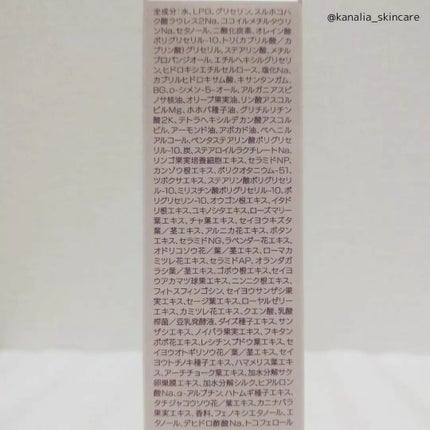 @kanalia_skincare
全成分:水、LPG、グリセリン、スルホコハ
ク酸ラウレス2Na、ココイルメチルタウリ
ンNa、セタノール、二酸化炭素、オレイン酸
ポリグリセリル-10、トリ(カプリル酸/カ
プリン酸)グリセリル、ステアリン酸、メチル
プロパンジオール、エチルヘキシルグリセリ
ン、ヒドロキシエチルセルロース、塩化Na、
カプリルヒドロキサム酸、キサンタンガム、
BG、o-シメン-5-オール、アルガニアスピ
ノサ核油、オリーブ果実油、リン酸アスコル
ビルMg、ホホバ種子油、グリチルリチン
酸2K、テトラヘキシルデカン酸アスコルビ
ル、アーモンド油、アボカド油、ベヘニル
アルコール、ペンタステアリン酸ポリグリセ
リル-10、炭、ステアロイルラクチレートNa、
リンゴ果実培養細胞エキス、セラミドNP、
カンゾウ根エキス、ポリクオタニウム-51、
ツボクサエキス、ステアリン酸ポリグリセリ
ル-10、ミリスチン酸ポリグリセリル-10、ポ
リグリセリン-10、オウゴン根エキス、イタド
リ根エキス、ユキノシタエキス、ローズマリー
葉エキス、チャ葉エキス、セイヨウキズタ
葉/茎エキス、アルニカ花エキス、ボタン
エキス、セラミドNG、ラベンダー花エキス、
オドリコソウ花/葉/茎エキス、ローマカ
ミツレ花エキス、セラミドAP、オランダガ
ラシ葉/茎エキス、ゴボウ根エキス、セイヨ
ウアカマツ球果エキス、ニンニク根エキス、
フィトスフィンゴシン、セイヨウサンザシ果
実エキス、セージ葉エキス、ローヤルゼリー
エキス、カミツレ花エキス、クエン酸、乳酸
桿菌/豆乳発酵液、ダイズ種子エキス、サン
ザシエキス、ノイバラ果実エキス、フキタン
ポポ花エキス、レシチン、ブドウ葉エキス、セ
イヨウオトギリソウ花/葉/茎エキス、セイ
ヨウトチノキ種子エキス、ハマメリス葉エキ
ス、アーチチョーク葉エキス、加水分解サケ
卵巣膜エキス、加水分解シルク、ヒアルロン
酸Na、α-アルブチン、ハトムギ種子エキス、
タチジャコウソウ花/葉エキス、カニナバラ
果実エキス、香料、フェノキシエタノール、エ
タノール、デヒドロ酢酸Na、トコフェロール